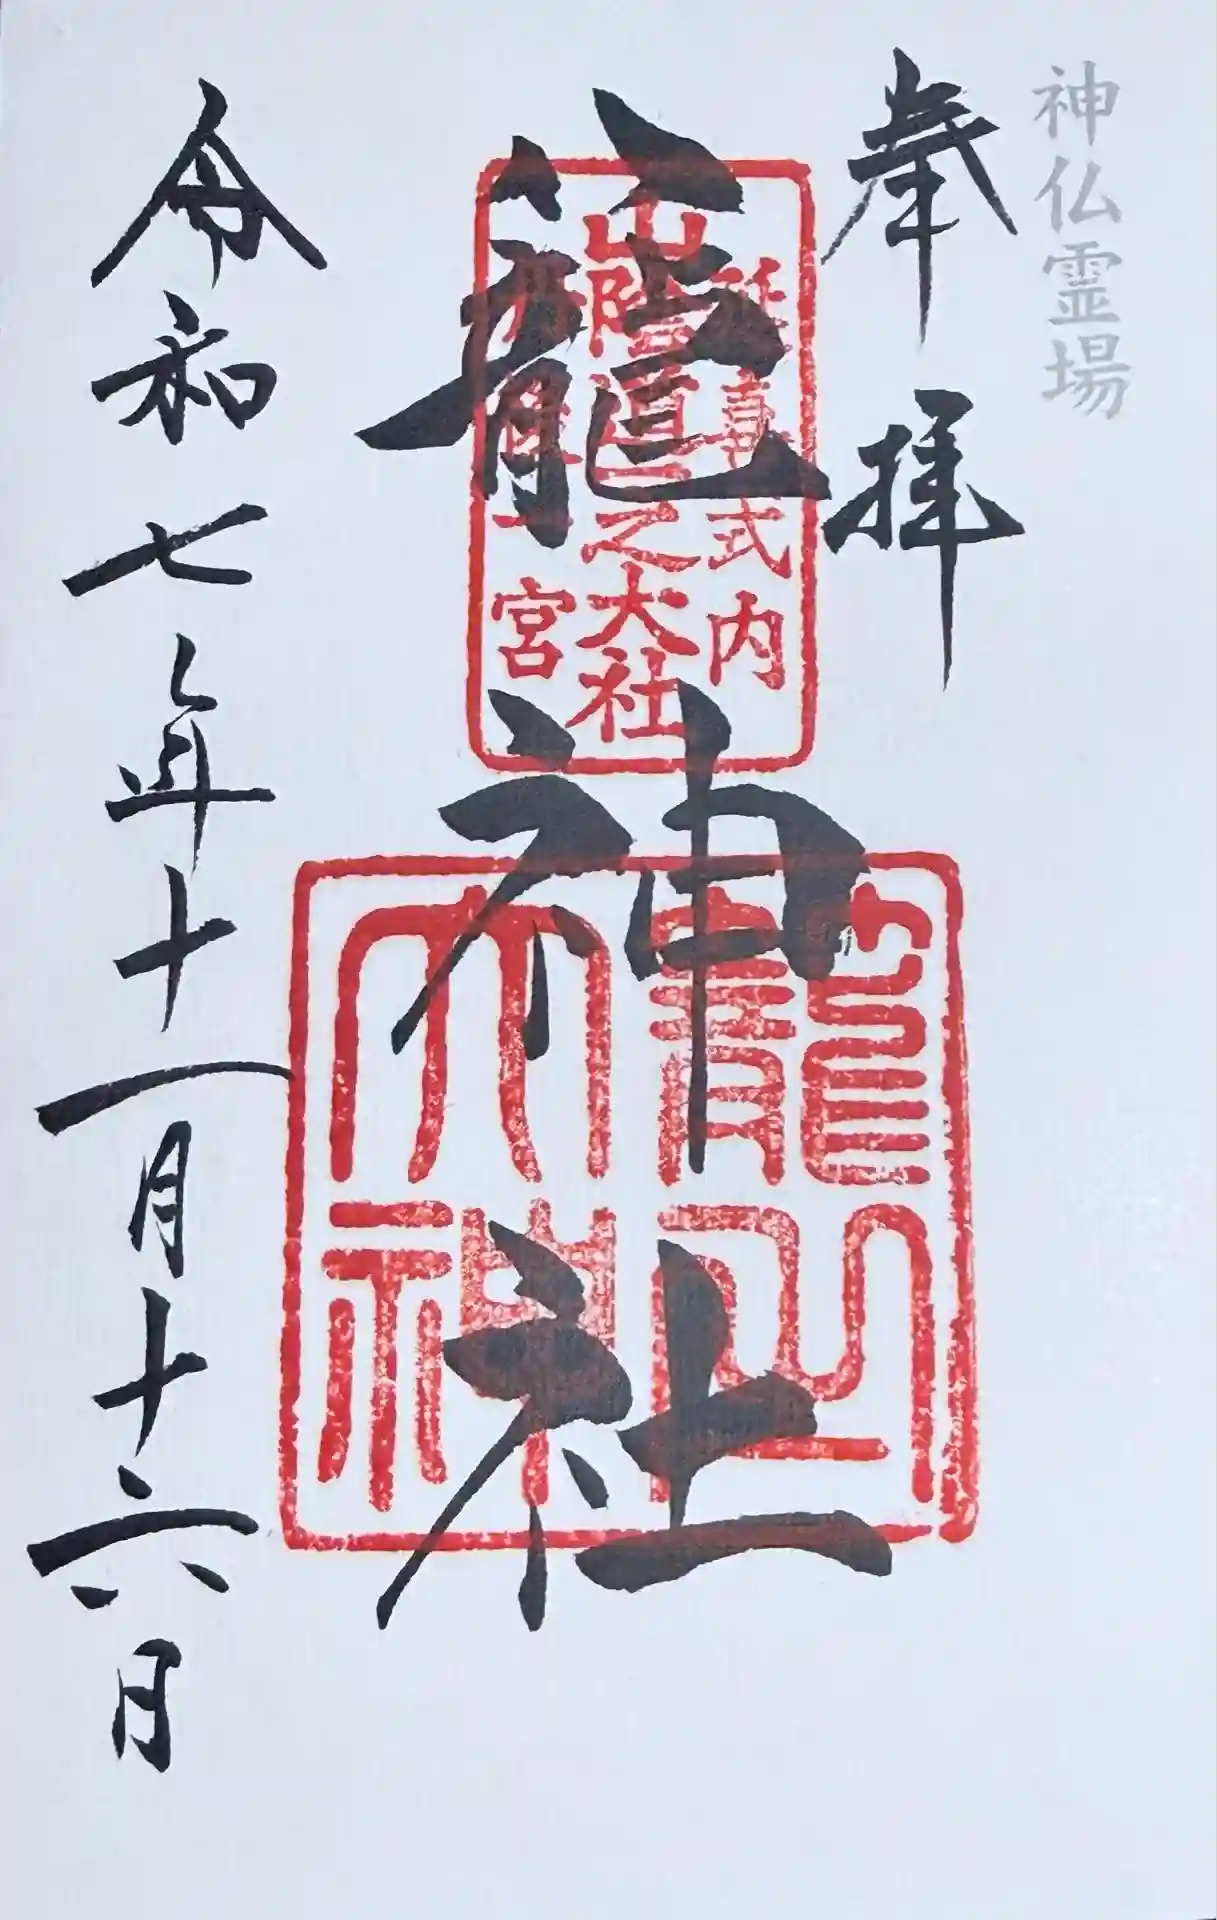 神仏霊場
奉拝
延喜式内
山陰道一之大社
丹後一宮
籠神社
令和七年十一月十六日